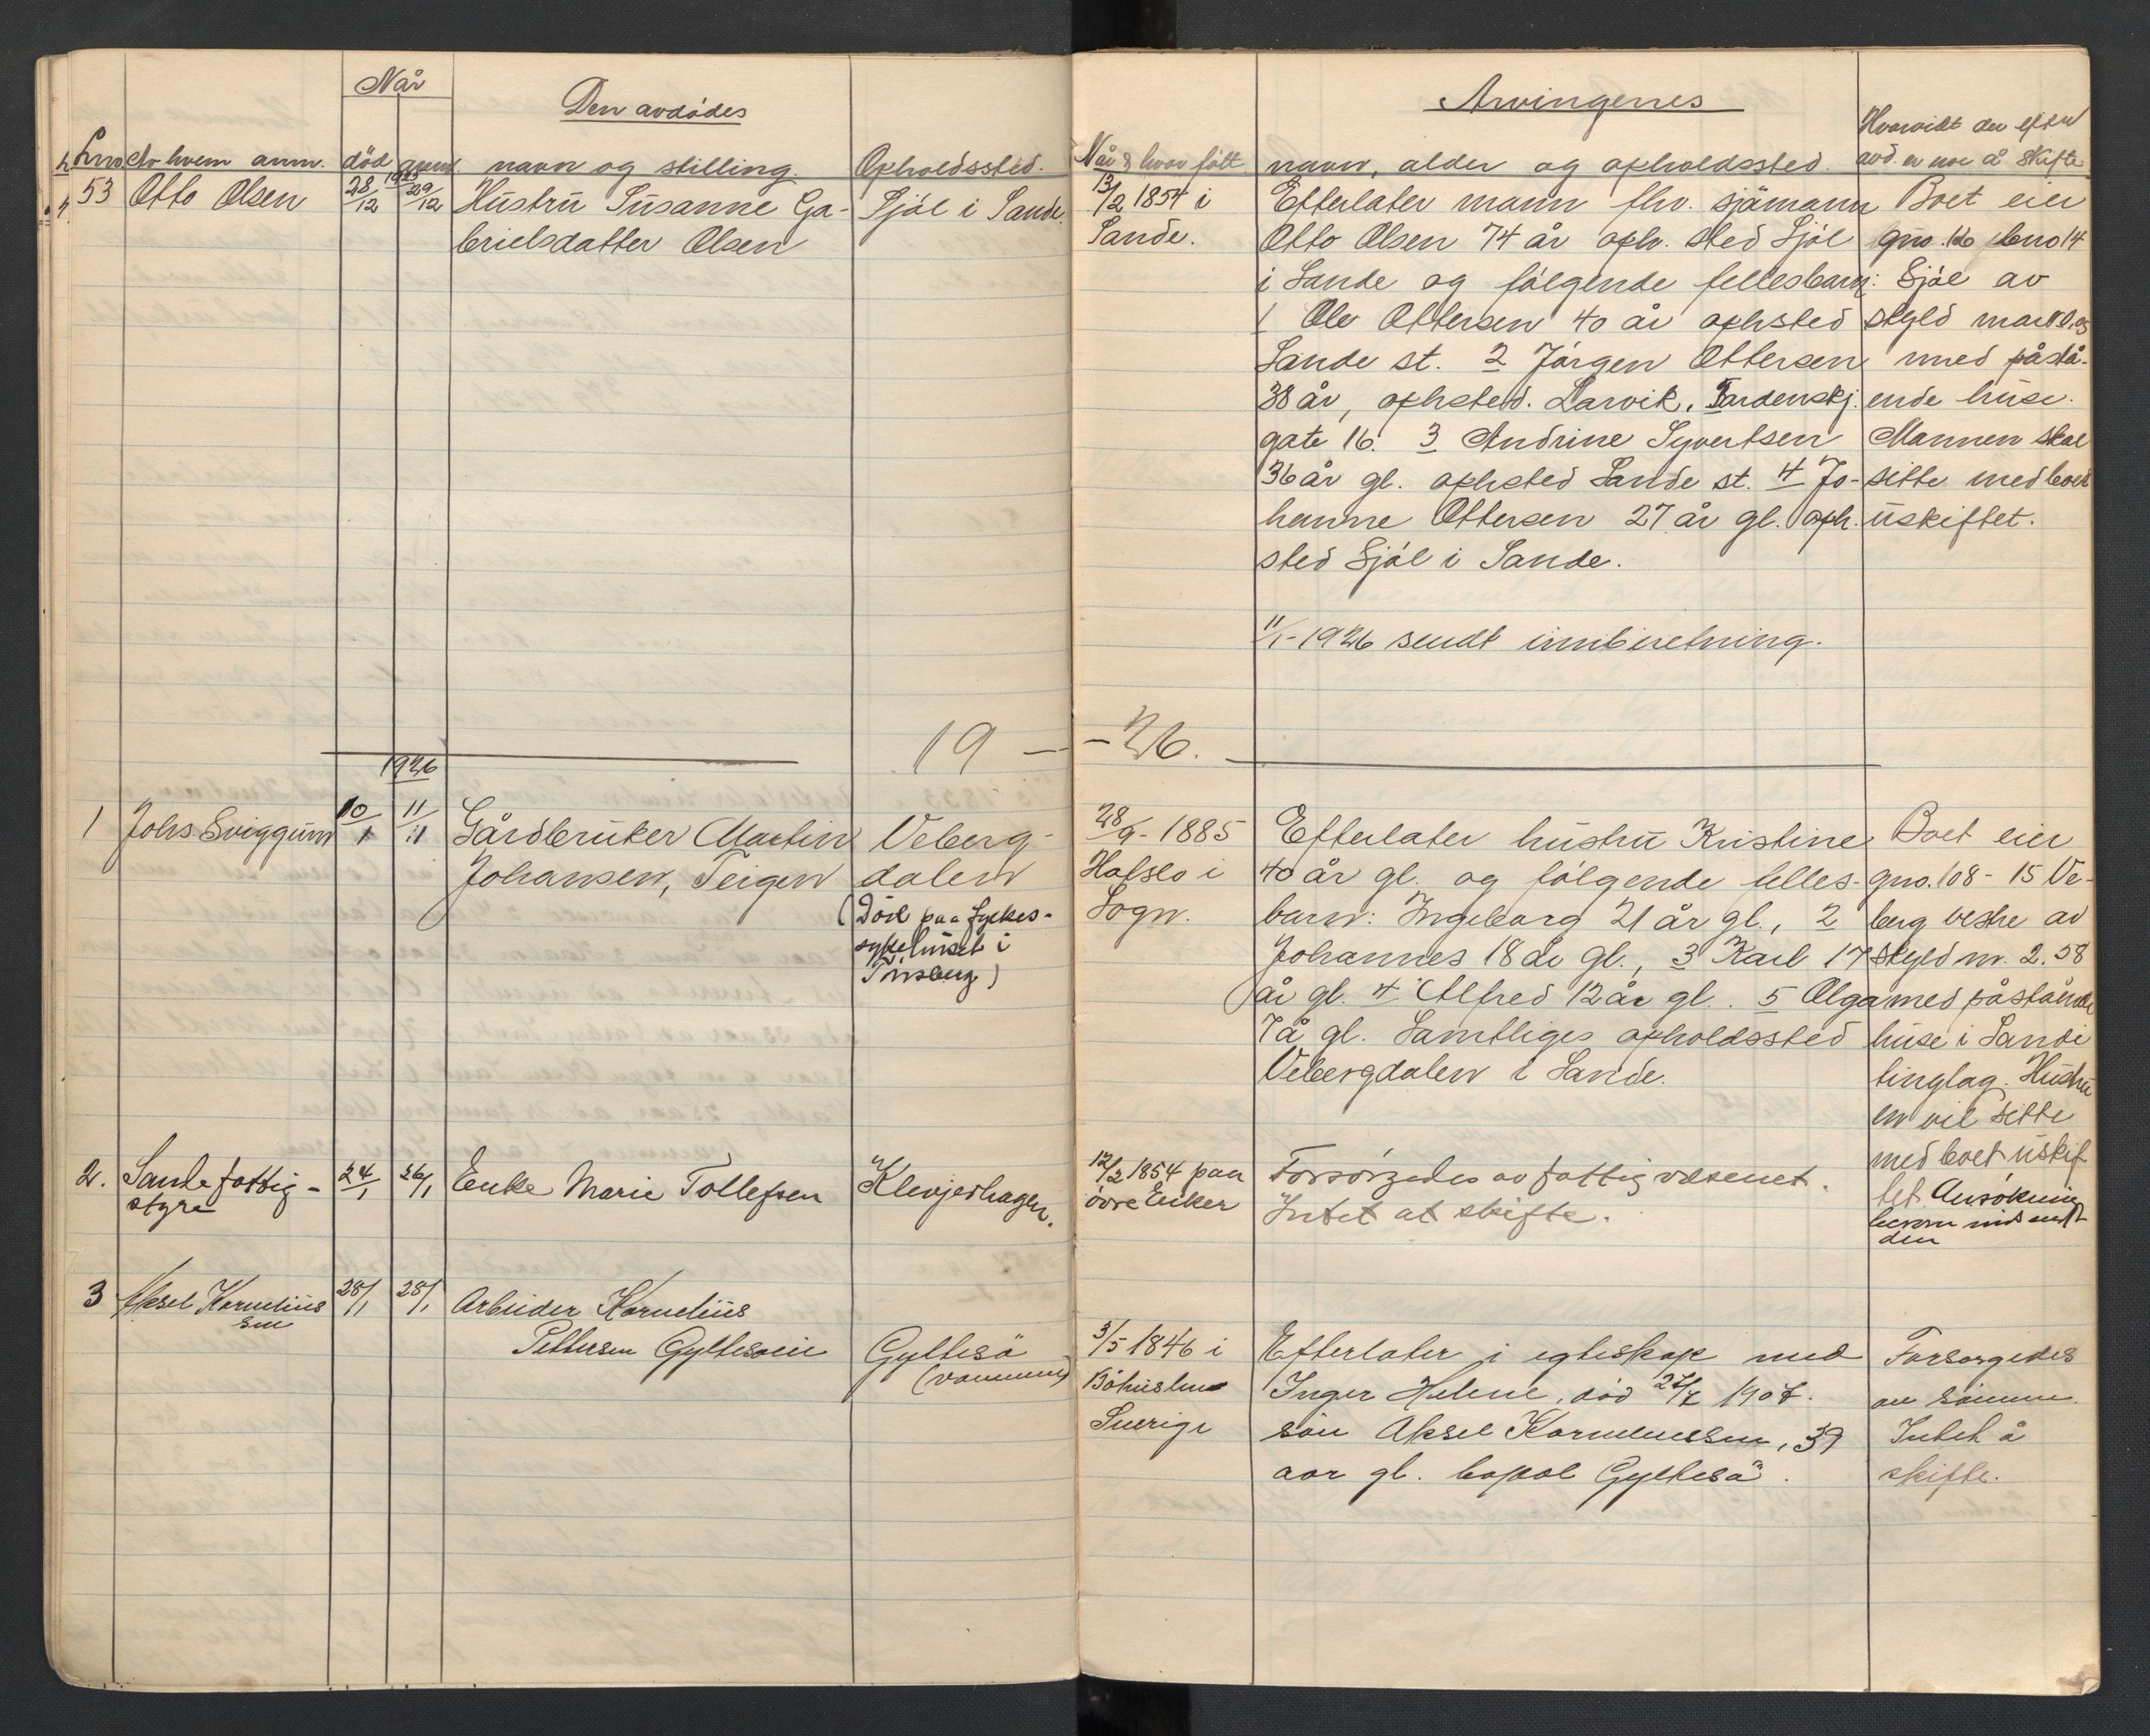 Når
Den avdødes
Lnr. Av hvem anm. død anm navn og stilling. Opholdssted.
1925
53 Otto Olsen 28/12 29/12 Hustru Susanne Ga- Sjøl i Sande.
brielsdatter Olsen
19 -
1926
1 Johs. Sviggum 10/1 11/1 Gårdbruker Martin Veberg-
Johansen, Teigen dalen
(Död paa fylkes-
sykehuset i
Tönsberg)
2. Sande fattig- 24/1 26/1 Enke Marie Tollefsen Klevjerhagen.
styre
3 Aksel Kornelius 28/1 28/1 Arbeider Kornelius
sen
Pettersen Gyltesöeie Gyltesö
Arvingenes
Hvorvidt der efter
Når & hvor født navn, alder og opholdssted. avd. er noe å skifte
13/2 1854 i Efterlater mann fhv. sjömann Boet eier
Sande. Otto Olsen 74 år oph. sted Sjöl gno. 16 bno 14
i Sande og følgende fellesbarn: Sjøl av
1 Ole Ottersen 40 år ophsted skyld mark 0,05
Sande st. 2 Jörgen Ottersen med påstå-
38 år, ophsted. Larvik, Tordenskj. ende huse.
gate 16. 3 Andrine Syvertsen Mannen skal
36 år gl. ophsted Sande st. 4 Jo- sitte med boet
hanne Ottersen 27 år gl. oph. uskiftet.
sted Sjöl i Sande.
11/1-1926 sendt innberetning.
- 26.
28/9-1885 Efterlater hustru Kristine Boet eier
Hafslo i 40 år gl. og følgende felles- gno. 108 - 15 Ve-
Sogn. barn: Ingeborg 21 år gl., 2 berg vestre av
Johannes 18 år gl., 3 Karl 17 skyld m. 2.58
år gl. 4 Alfred 12 år gl. 5 Olga med påstående
7 å gl. Samtliges opholdssted huse i Sande
Vebergdalen i Sande. tinglag. Hustru
en vil sitte
med boet uskif-
12/2 1854 paa Forsörgedes av fattigvæsenet. tet. Ansökning
övre Eiker Intet at skifte. herom indsendt
den
3/5 1846 i Efterlater i egteskap med Forsorgedes
Båhuslen Inger Helene, død 1907. av sönnen.
Sverige sön Aksel Korneliussen, 39 Intet å
aar gl. bopæl Gyltesö. skifte.